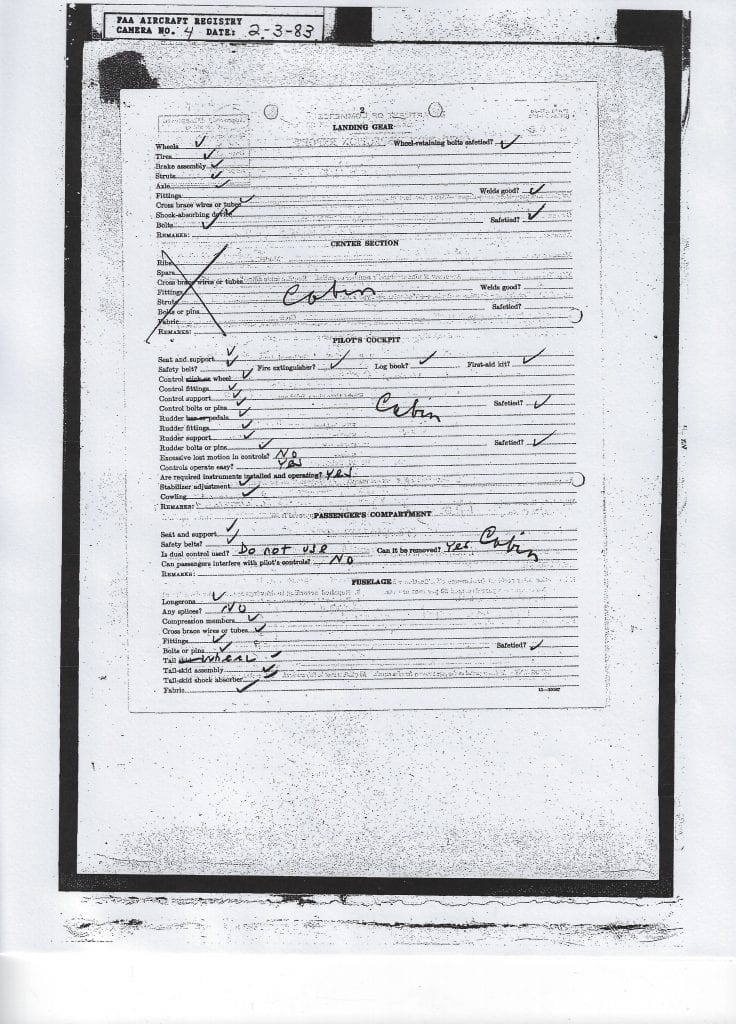 FAA AIRCRAFT REGISTRY
CAMERA NO. 4 DATE: 2-3-83
2
LANDING GEAR
Wheels ✓ Wheel-retaining bolts safetied? ✓
Tires ✓
Brake assembly ✓
Struts ✓
Axle ✓
Fittings Welds good? ✓
Cross brace wires or tubes ✓
Shock-absorbing device ✓ Safetied? ✓
Bolts ✓
REMARKS:
CENTER SECTION
Ribs
Spars
Cross brace wires or tubes
Fittings Cabin Welds good?
Struts
Bolts or pins Safetied?
Fabric
REMARKS:
PILOT'S COCKPIT
Seat and support ✓
Safety belt? ✓ Fire extinguisher? ✓ Log book? ✓ First-aid kit? ✓
Control stick or wheel ✓
Control fittings ✓
Control support ✓
Control bolts or pins ✓ Cabin Safetied? ✓
Rudder bar or pedals ✓
Rudder fittings ✓
Rudder support ✓
Rudder bolts or pins ✓ Safetied? ✓
Excessive lost motion in controls? No
Controls operate easy? Yes
Are required instruments installed and operating? Yes
Stabilizer adjustment ✓
Cowling ✓
REMARKS:
PASSENGER'S COMPARTMENT
Seat and support ✓
Safety belts? ✓
Is dual control used? Do not use Can it be removed? Yes Cabin
Can passengers interfere with pilot's controls? No
REMARKS:
FUSELAGE
Longerons ✓
Any splices? No
Compression members ✓
Cross brace wires or tubes ✓
Fittings ✓
Bolts or pins ✓ Safetied? ✓
Tail wheel ✓
Tail-skid assembly ✓
Tail-skid shock absorber ✓
Fabric ✓